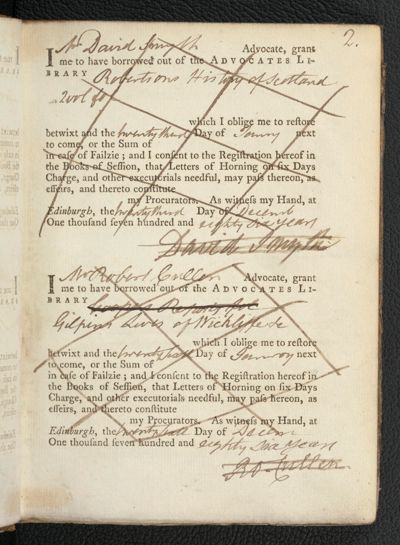 2.
I Mr David Smyth Advocate, grant
me to have borrowed out of the ADVOCATES LI-
BRARY Robertsons History of Scotland
2 vol fo
which I oblige me to restore
betwixt and the twenty third Day of Janry next
to come, or the Sum of
in case of Failzie; and I consent to the Registration hereof in
the Books of Session, that Letters of Horning on six Days
Charge, and other executorials needful, may pass thereon, as
effeirs, and thereto constitute
my Procurators. As witness my Hand, at
Edinburgh, the twenty third Day of Decemr
One thousand seven hundred and eighty six years
David Smyth
I Mr Robert Cullen Advocate, grant
me to have borrowed out of the ADVOCATES LI-
BRARY
Gilpins Lives of Wickliffe &c
which I oblige me to restore
betwixt and the Day of Janry next
to come, or the Sum of
in case of Failzie; and I consent to the Registration hereof in
the Books of Session, that Letters of Horning on six Days
Charge, and other executorials needful, may pass hereon, as
effeirs, and thereto constitute
my Procurators. As witness my Hand, at
Edinburgh, the Day of Decemr
One thousand seven hundred and eighty six years
Ro. Cullen